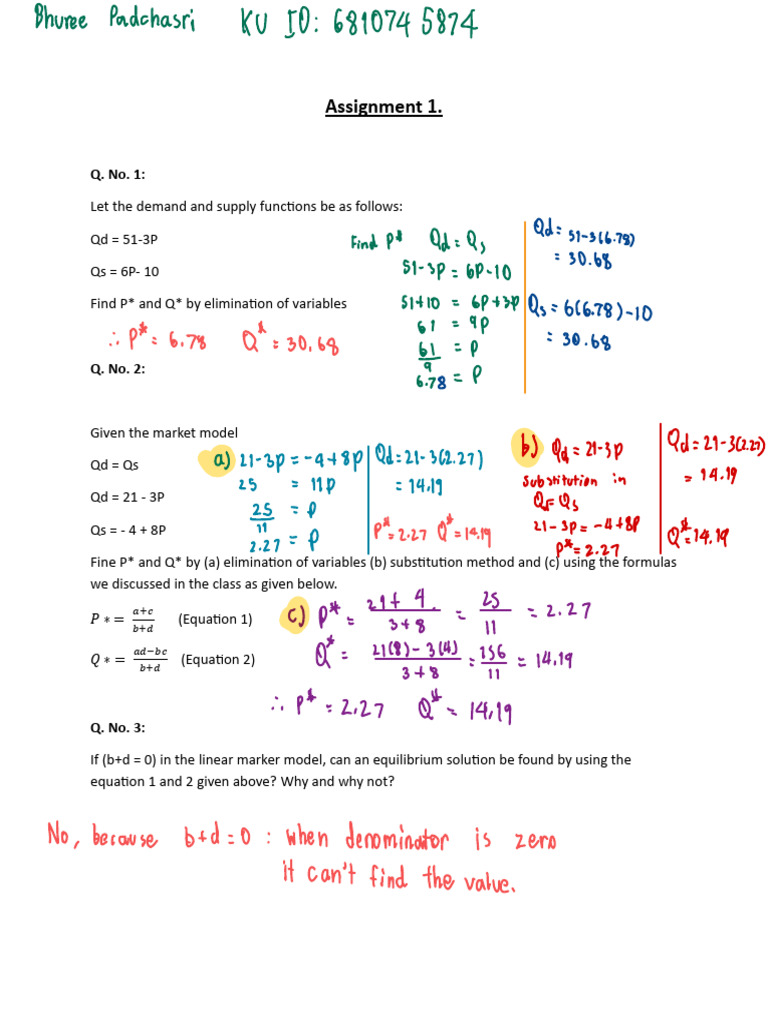 Bhuree Padchasri KU ID: 6810745874
Assignment 1.
Q. No. 1:
Let the demand and supply functions be as follows:
Qd = 51-3P
Qs = 6P- 10
Find P* and Q* by elimination of variables
∴ P* = 6.78 Q* = 30.68
Find P* Qd = Qs
51-3P = 6P-10
51+10 = 6P+3P
61 = 9P
61/9 = P
6.78 = P
Qd = 51-3(6.78)
= 30.68
Qs = 6(6.78)-10
= 30.68
Q. No. 2:
Given the market model
Qd = Qs
Qd = 21 - 3P
Qs = - 4 + 8P
a) 21-3P = -4+8P
25 = 11P
25/11 = P
2.27 = P
Qd = 21-3(2.27)
= 14.19
P* = 2.27 Q* = 14.19
b) Qd = 21-3P
Substitution in
Qd = Qs
21-3P = -4+8P
P* = 2.27
Qd = 21-3(2.27)
= 14.19
Q* = 14.19
Fine P* and Q* by (a) elimination of variables (b) substitution method and (c) using the formulas
we discussed in the class as given below.
P * = a+c/b+d (Equation 1)
Q * = ad-bc/b+d (Equation 2)
c) P* = 21+4/3+8 = 25/11 = 2.27
Q* = 21(8)-3(4)/3+8 = 156/11 = 14.19
∴ P* = 2.27 Q* = 14.19
Q. No. 3:
If (b+d = 0) in the linear marker model, can an equilibrium solution be found by using the
equation 1 and 2 given above? Why and why not?
No, because b+d = 0 : when denominator is zero
it can't find the value.